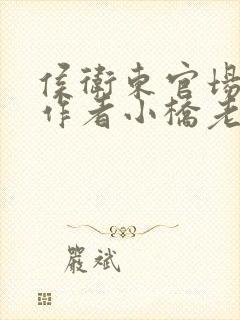 侯衛東官場
作者小橋老
嚴斌